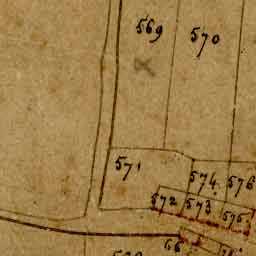 569
570
571
574
576
572
573
575
66